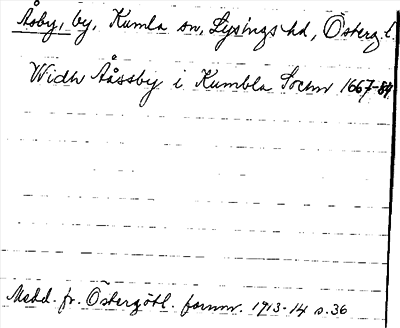 Åsby, by, Kumla sn, Lysings hd, Österg.l.
Widh Ååssby i Kumbla Sochn 1667-84.
Medd. fr. Östergötl. fornm. 1913-14 s. 36